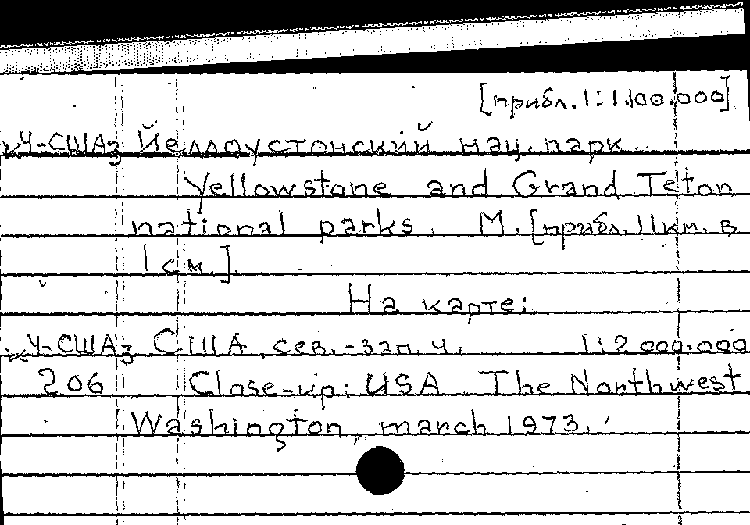 [прибл. 1:1.100.000]
Ч-США3 Йеллоустонский нац. парк
Yellowstone and Grand Teton
national parks. М. [прибл. 11 км. в
1 см.]
На карте:
Ч-США3 США, сев.-зап. ч. 1:2 000.000
206 Close-up: USA The Northwest
Washington, march 1973.